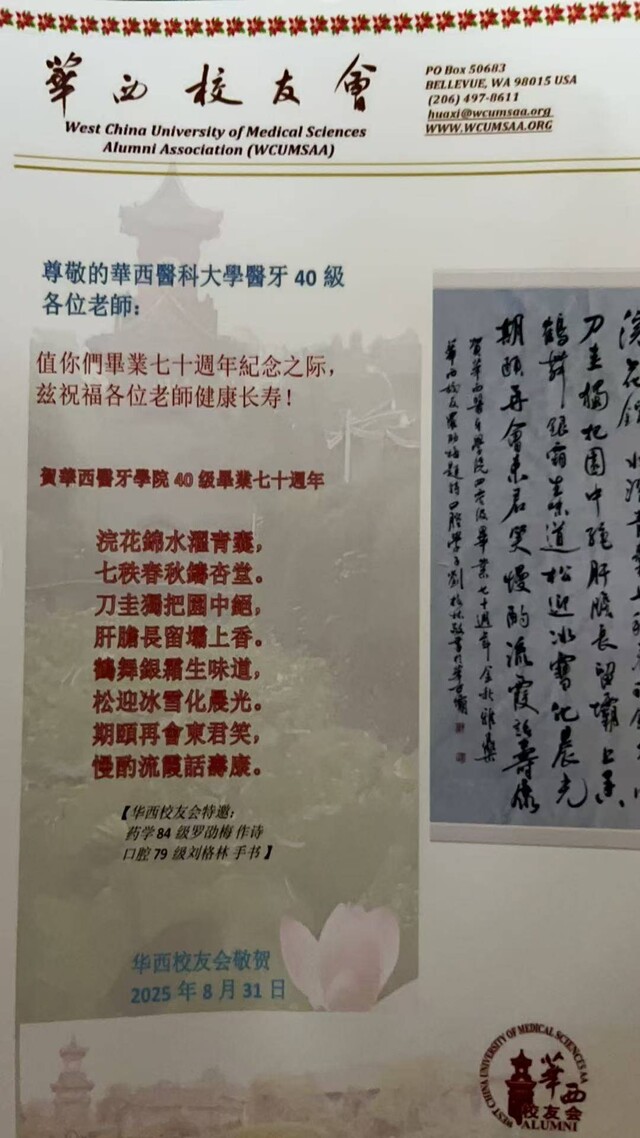 華西校友會
West China University of Medical Sciences
Alumni Association (WCUMSAA)
PO Box 50683
BELLEVUE, WA 98015 USA
(206) 497-8611
huaxi@wcumsaa.org
WWW.WCUMSAA.ORG
尊敬的華西醫科大學醫牙 40 級
各位老師:
值你們畢業七十週年紀念之际，
兹祝福各位老師健康长寿!
賀華西醫牙學院 40 级畢業七十週年
浣花錦水濯青囊，
七秩春秋鑄杏堂。
刀圭獨把園中絕，
肝膽長留壩上香。
鶴舞銀霜生味道，
松迎冰雪化晨光。
期頤再會東君笑，
慢酌流霞話壽康。
【华西校友会特邀:
药学 84 级罗劭梅 作诗
口腔 79 级刘格林 手书】
华西校友会敬贺
2025 年 8 月 31 日
刀圭獨把園中絕肝膽長留壩上香
鶴舞銀霜生味道松迎冰雪化晨光
期頤再會東君笑慢酌流霞話壽康
WEST CHINA UNIVERSITY OF MEDICAL SCIENCES AA
華西
校友会
ALUMNI